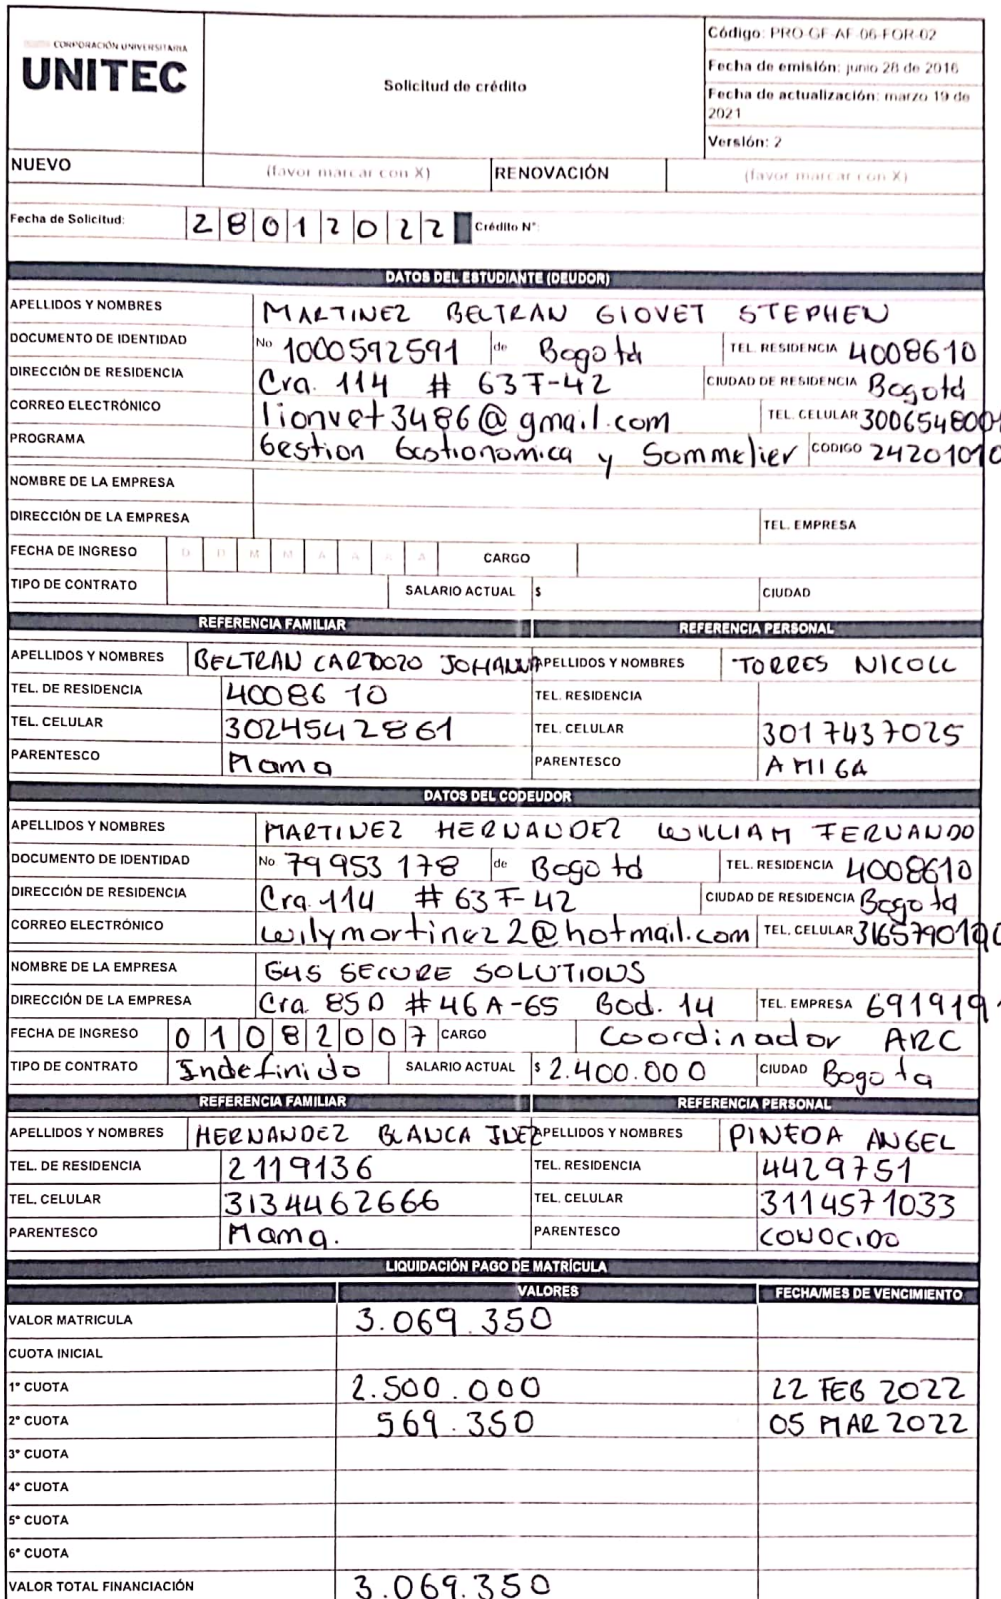 CORPORACIÓN UNIVERSITARIA
UNITEC
Solicitud de crédito
Código: PRO-GF-AF-06-FOR-02
Fecha de emisión: junio 28 de 2016
Fecha de actualización: marzo 19 de 2021
Versión: 2
NUEVO (favor marcar con X) RENOVACIÓN (favor marcar con X)
Fecha de Solicitud: 2 8 0 1 2 0 2 2 Crédito N°:
DATOS DEL ESTUDIANTE (DEUDOR)
APELLIDOS Y NOMBRES MARTINEZ BELTRAN GIOVET STEPHEN
DOCUMENTO DE IDENTIDAD No 1000592591 de Bogotá TEL. RESIDENCIA 4008610
DIRECCIÓN DE RESIDENCIA Cra. 114 # 63F-42 CIUDAD DE RESIDENCIA Bogotá
CORREO ELECTRÓNICO lionvet3486@gmail.com TEL. CELULAR 3006548001
PROGRAMA Gestion Gastronomica y Sommelier CODIGO 24201010
NOMBRE DE LA EMPRESA
DIRECCIÓN DE LA EMPRESA TEL. EMPRESA
FECHA DE INGRESO D D M M A A A A CARGO
TIPO DE CONTRATO SALARIO ACTUAL $ CIUDAD
REFERENCIA FAMILIAR REFERENCIA PERSONAL
APELLIDOS Y NOMBRES BELTRAN CARDOZO JOHANNA APELLIDOS Y NOMBRES TORRES NICOLL
TEL. DE RESIDENCIA 4008610 TEL. RESIDENCIA
TEL. CELULAR 3024542861 TEL. CELULAR 3017437025
PARENTESCO Mama PARENTESCO AMIGA
DATOS DEL CODEUDOR
APELLIDOS Y NOMBRES MARTINEZ HERNANDEZ WILLIAM FERNANDO
DOCUMENTO DE IDENTIDAD No 79953178 de Bogotá TEL. RESIDENCIA 4008610
DIRECCIÓN DE RESIDENCIA Cra. 114 # 63F-42 CIUDAD DE RESIDENCIA Bogotá
CORREO ELECTRÓNICO wilymartinez2@hotmail.com TEL. CELULAR 3165790190
NOMBRE DE LA EMPRESA G4S SECURE SOLUTIONS
DIRECCIÓN DE LA EMPRESA Cra. 85D #46A-65 Bod. 14 TEL. EMPRESA 6919191
FECHA DE INGRESO 0 1 0 8 2 0 0 7 CARGO Coordinador ARC
TIPO DE CONTRATO Indefinido SALARIO ACTUAL $ 2.400.000 CIUDAD Bogota
REFERENCIA FAMILIAR REFERENCIA PERSONAL
APELLIDOS Y NOMBRES HERNANDEZ BLANCA INEZ APELLIDOS Y NOMBRES PINEDA ANGEL
TEL. DE RESIDENCIA 2119136 TEL. RESIDENCIA 4429751
TEL. CELULAR 3134462666 TEL. CELULAR 3114571033
PARENTESCO Mama. PARENTESCO CONOCIDO
LIQUIDACIÓN PAGO DE MATRÍCULA
VALORES FECHA/MES DE VENCIMIENTO
VALOR MATRICULA 3.069.350
CUOTA INICIAL
1° CUOTA 2.500.000 22 FEB 2022
2° CUOTA 569.350 05 MAR 2022
3° CUOTA
4° CUOTA
5° CUOTA
6° CUOTA
VALOR TOTAL FINANCIACIÓN 3.069.350